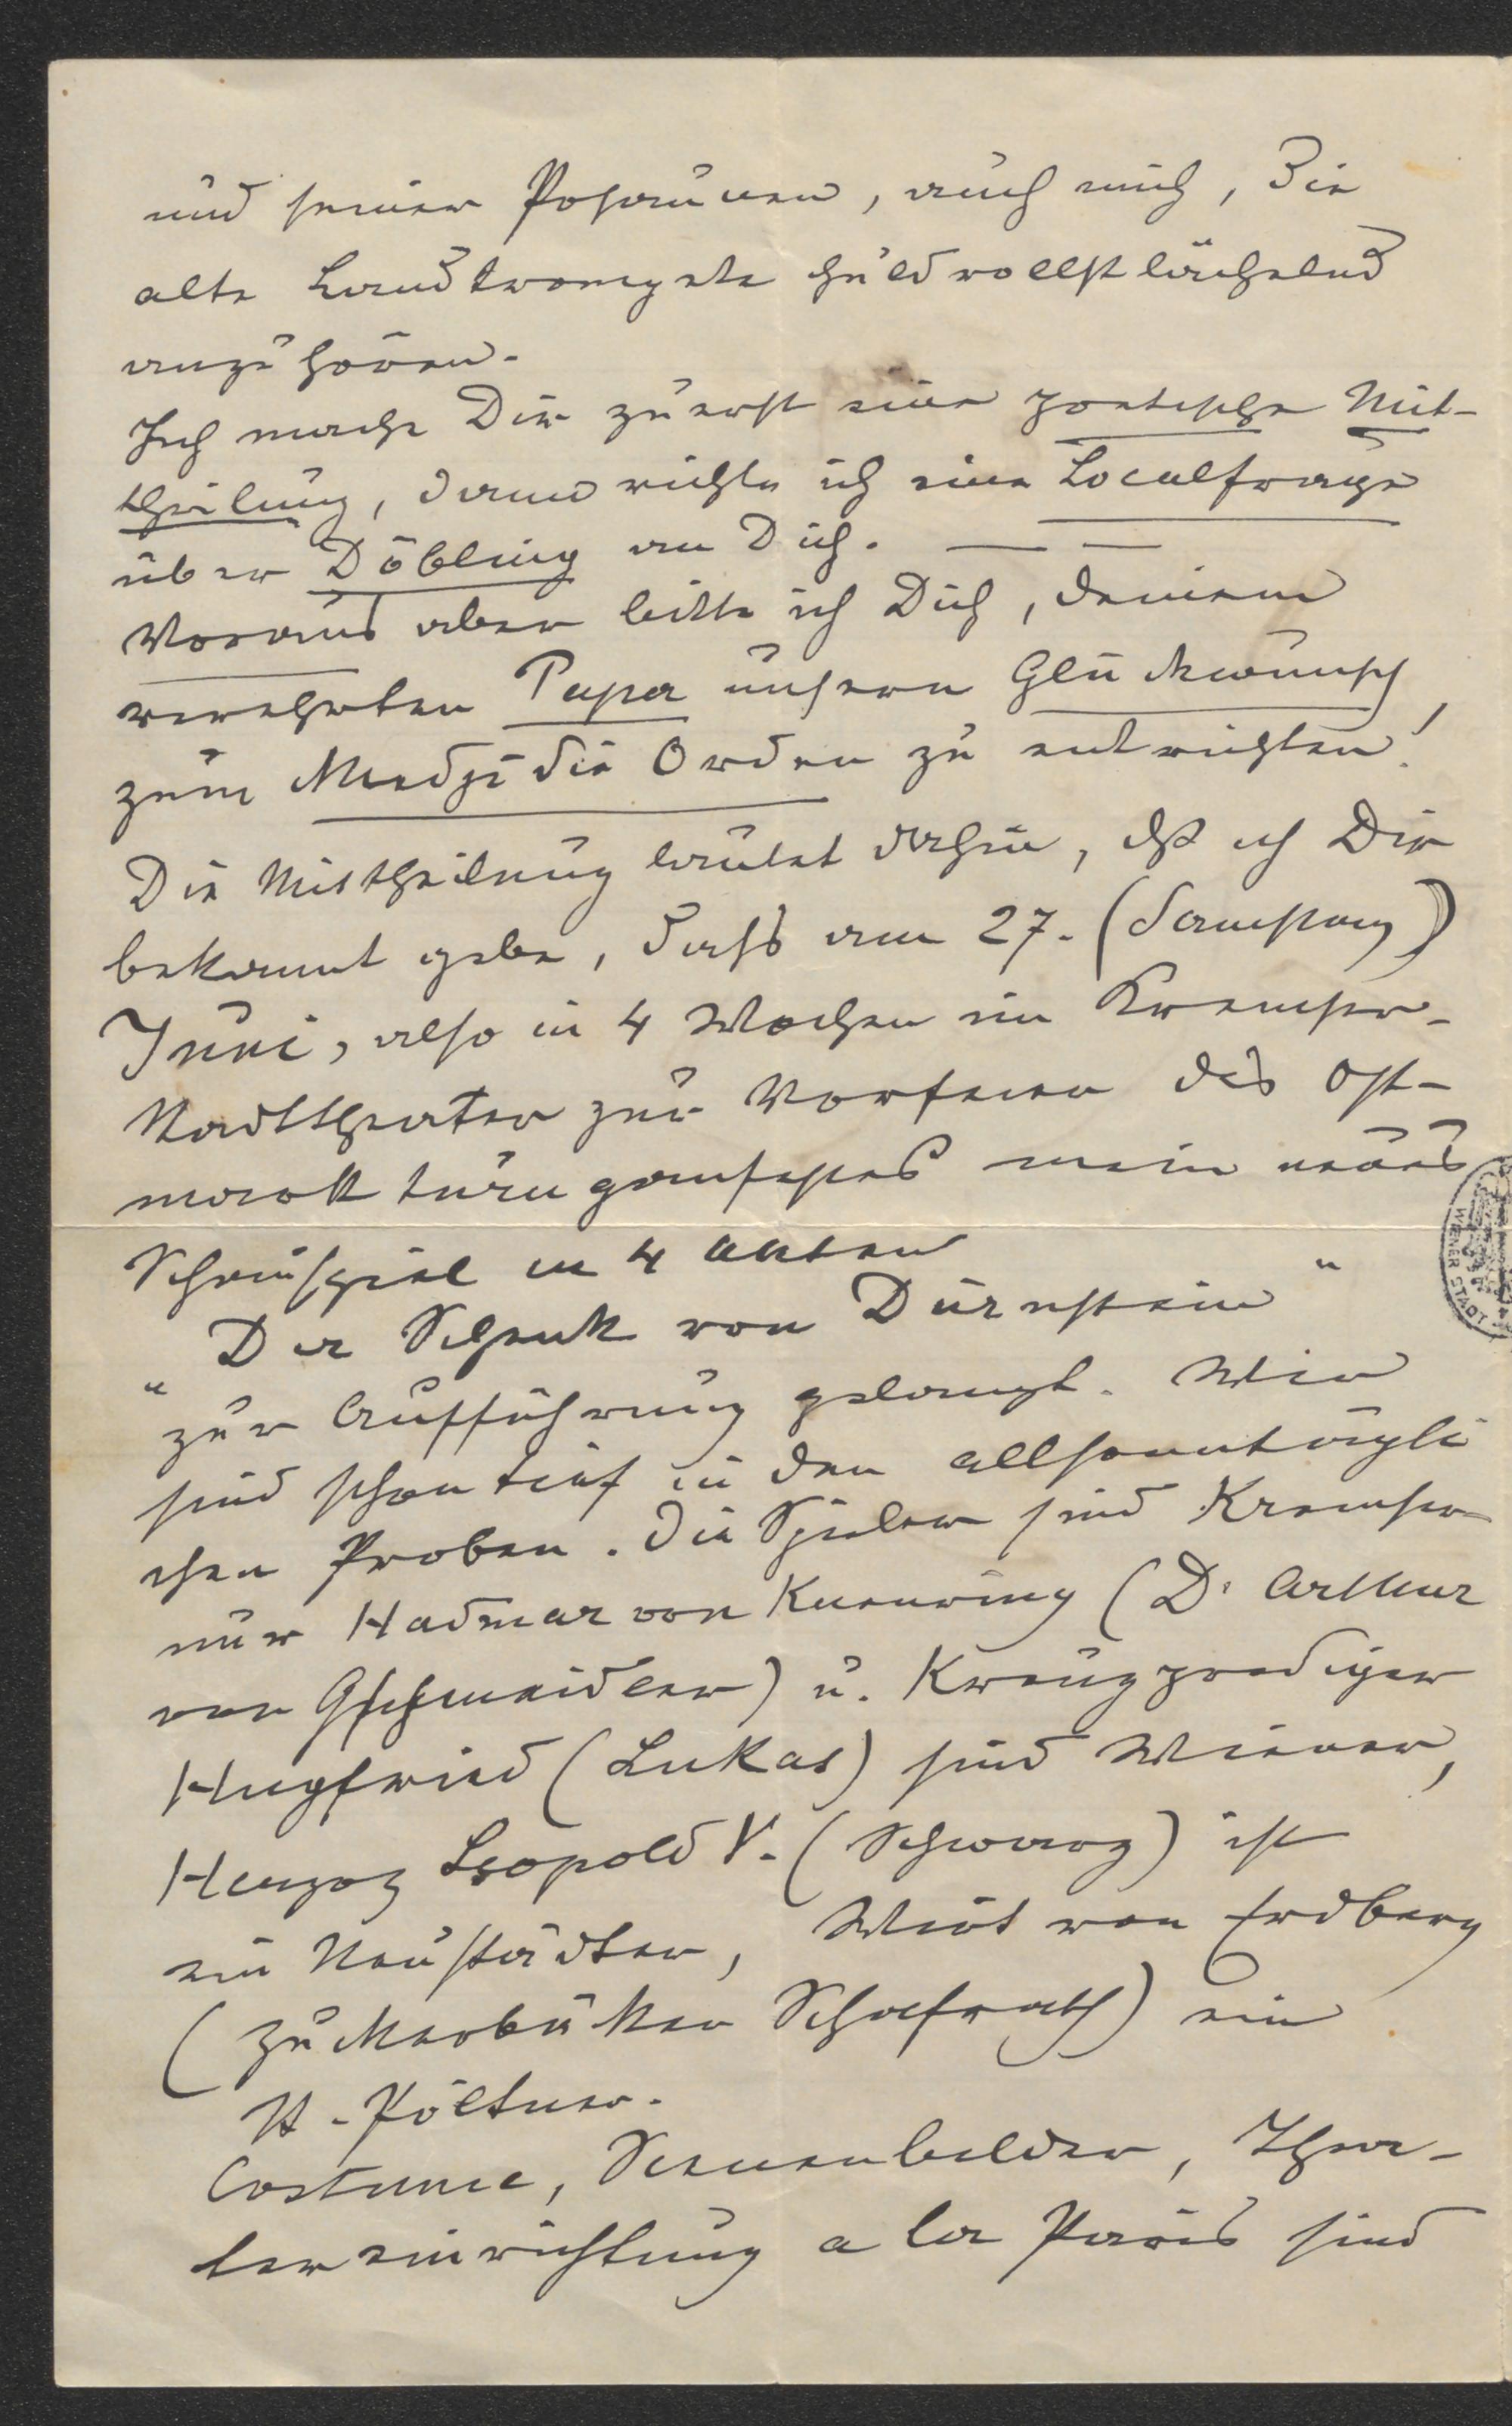 und seiner Posaunen, auch mich, die
alte Landtrompete huldvollst lächelnd
anzuhören.
Ich mache Dir zuerst eine poetische Mit-
theilung, dann richte ich eine Localfrage
über Döbling an Dich. — —
Voraus aber bitte ich Dich, deinem
verehrten Papa unsern Glückwunsch,
zum Medjidie Orden zu entrichten!
Die Mittheilung lautet dahin, dß ich Dir
bekannt gebe, dass am 27. (Samstag)
Juni, also in 4 Wochen im Kremser-
Stadttheater zur Vorfeier des Ost-
markturngaufestes mein neues
Schauspiel in 4 Akten
"Der Schenk von Dürnstein"
zur Aufführung gelangt. Wir
sind schon tief in den allsonntägli
chen Proben. Die Spieler sind Kremser
nur Hadmar von Kuenring (Dr Arthur
von Gschmeidler) u. Kreuzprediger
Hugfried (Lukas) sind Wiener,
Herzog Leopold V. (Schwarz) ist
ein Neustädter, Wirt von Erdberg
(Zuckerbäcker Schafrath) ein
St. Pöltner.
Costume, Scenenbilder, Thea-
tereinrichtung a la Paris sind
WIENER STADT